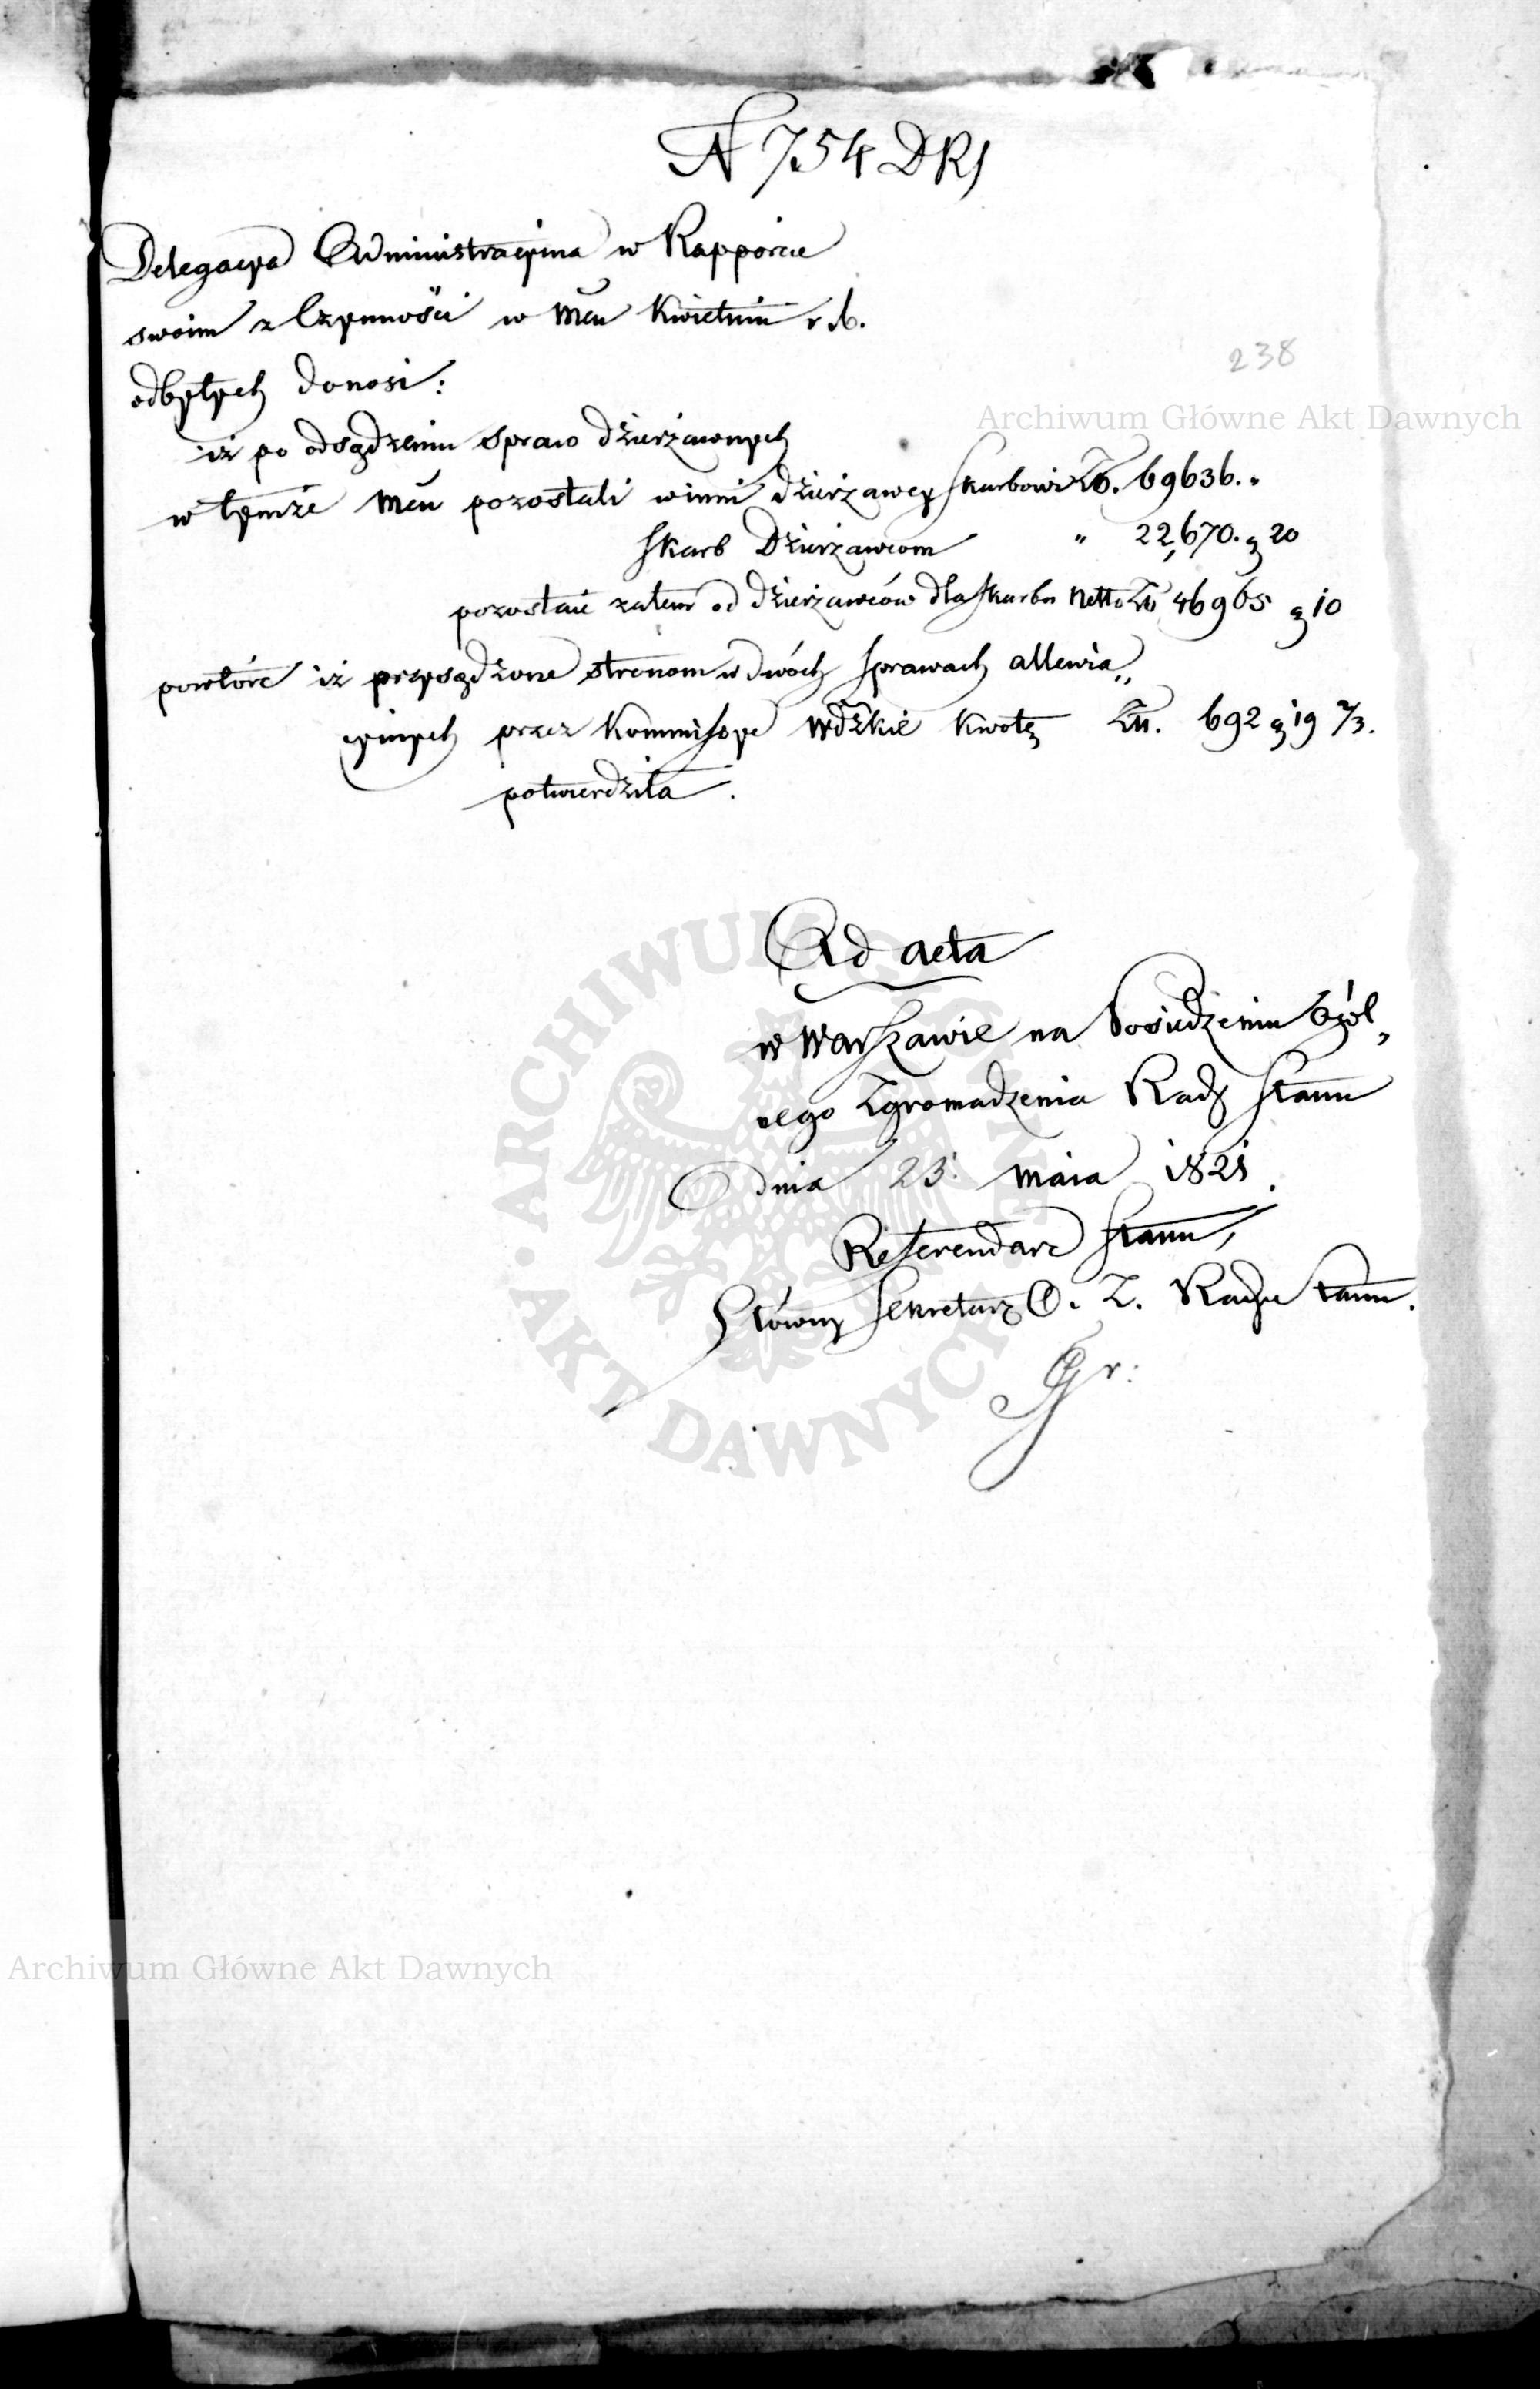 N 754 DRS
Delegacya Administracyina w Rapporcie
swoim z Czynności w Mcu Kwietniu r. b.
238
odbytych donosi:
Archiwum Główne Akt Dawnych
iż po odsądzeniu spraw dzierżawnych
w tymże Mcu pozostali winni dzierżawcy Skarbowi Zł. 69636. "
Skarb Dzierżawcom " 22,670. g 20
pozostaie zatem od dzierżawców dla Skarbu Netto Zł 46965 g 10
powtóre iż przysądzone stronom w dwóch Sprawach allewia„
cyinych przez Kommissye Wdzkie kwotę Zł. 692 g 19 2/3.
potwierdziła.
Ad acta
w Warszawie na Posiedzeniu Ogól„
nego Zgromadzenia Rady Stanu
dnia 25. Maia 1821.
Referendarz Stanu,
Główny Sekretarz O. Z. Rady Stanu.
Gr:
ARCHIWUM GŁÓWNE AKT DAWNYCH
Archiwum Główne Akt Dawnych